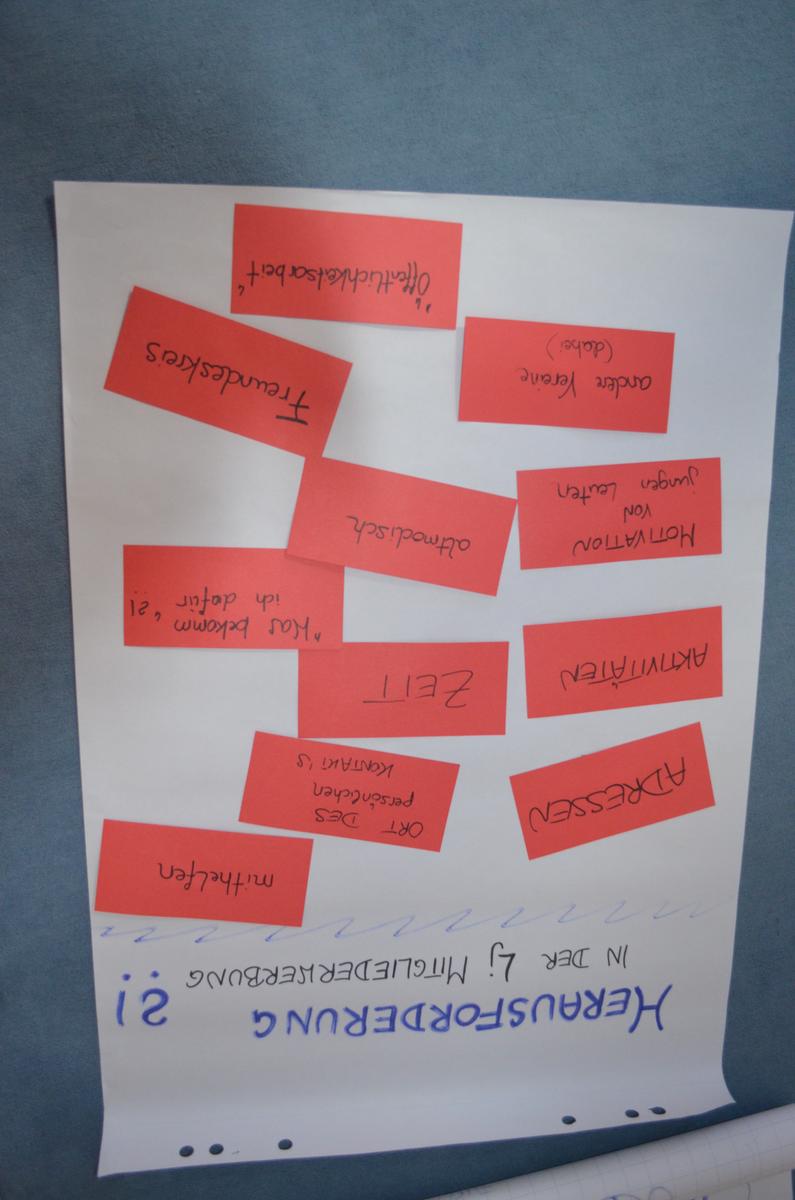 HERAUSFORDERUNG ?!
IN DER Lj MITGLIEDERWERBUNG
ADRESSEN
ORT DES
persönlichen
KONTAKT'S
mithelfen
AKTIVITÄTEN
ZEIT
"Was bekomm
ich dafür "?!
MOTIVATION
VON
jungen Leuten
altmodisch
andere Vereine
(dabei)
Freundeskreis
"Öffentlichkeitsarbeit"